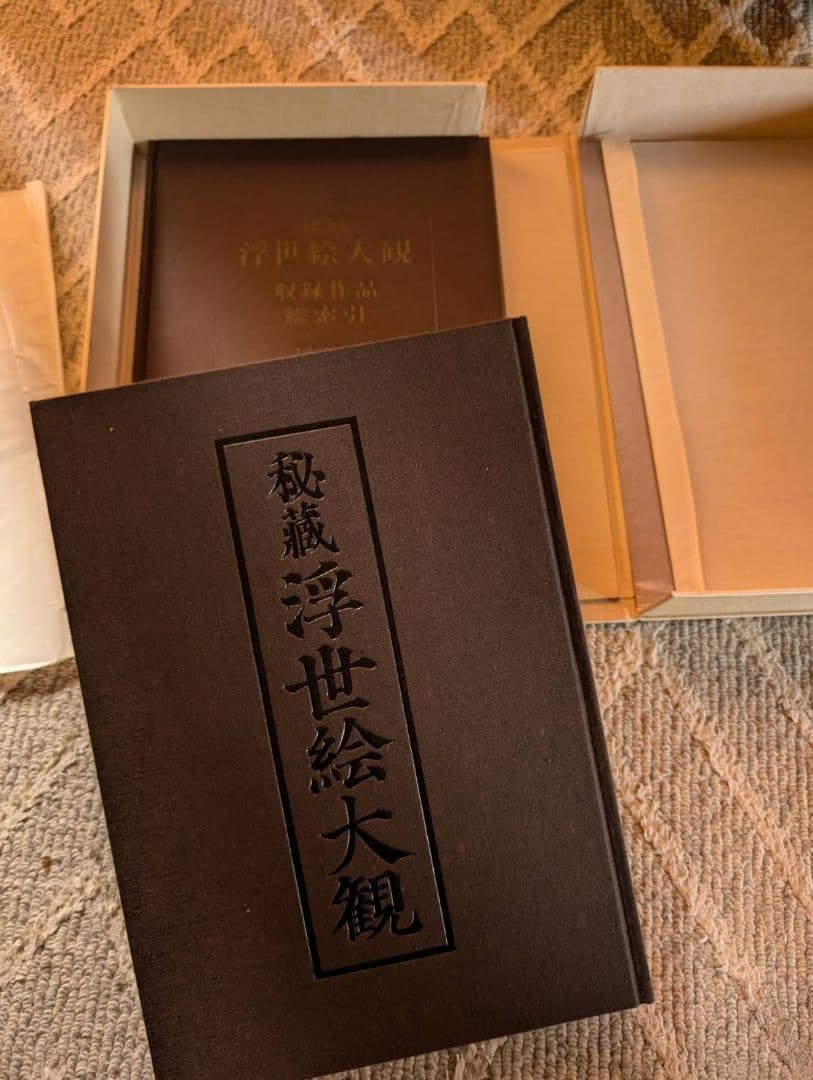 浮世絵大観
収録作品
総索引
秘蔵浮世絵大観